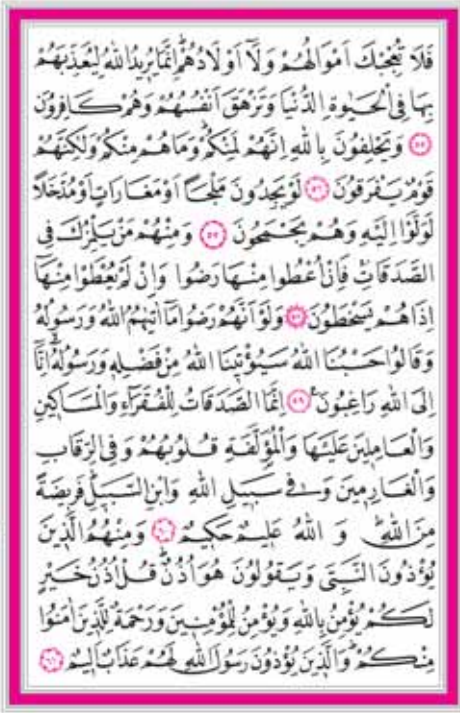 فَلَا تُعْجِبْكَ اَمْوَالُهُمْ وَلَٓا اَوْلَادُهُمْۜ اِنَّمَا يُرِيدُ اللّٰهُ لِيُعَذِّبَهُمْ
بِهَا فِي الْحَيٰوةِ الدُّنْيَا وَتَزْهَقَ اَنْفُسُهُمْ وَهُمْ كَافِرُونَ
﴿٥٥﴾ وَيَحْلِفُونَ بِاللّٰهِ اِنَّهُمْ لَمِنْكُمْۜ وَمَا هُمْ مِنْكُمْ وَلٰكِنَّهُمْ
قَوْمٌ يَفْرَقُونَ ﴿٥٦﴾ لَوْ يَجِدُونَ مَلْجَـًٔا اَوْ مَغَارَاتٍ اَوْ مُدَّخَلًا
لَوَلَّوْا اِلَيْهِ وَهُمْ يَجْمَحُونَ ﴿٥٧﴾ وَمِنْهُمْ مَنْ يَلْمِزُكَ فِي
الصَّدَقَاتِۚ فَاِنْ اُعْطُوا مِنْهَا رَضُوا وَاِنْ لَمْ يُعْطَوْا مِنْهَٓا
اِذَا هُمْ يَسْخَطُونَ ﴿٥٨﴾ وَلَوْ اَنَّهُمْ رَضُوا مَٓا اٰتٰيهُمُ اللّٰهُ وَرَسُولُهُۙ
وَقَالُوا حَسْبُنَا اللّٰهُ سَيُؤْتِينَا اللّٰهُ مِنْ فَضْلِهِ وَرَسُولُهُٓۙ اِنَّٓا
اِلَى اللّٰهِ رَاغِبُونَ۟ ﴿٥٩﴾ اِنَّمَا الصَّدَقَاتُ لِلْفُقَرَٓاءِ وَالْمَسَاكِينِ
وَالْعَامِلِينَ عَلَيْهَا وَالْمُؤَلَّفَةِ قُلُوبُهُمْ وَفِي الرِّقَابِ
وَالْغَارِمِينَ وَفِي سَبِيلِ اللّٰهِ وَابْنِ السَّبِيلِۜ فَرِيضَةً
مِنَ اللّٰهِۜ وَاللّٰهُ عَلِيمٌ حَكِيمٌ ﴿٦٠﴾ وَمِنْهُمُ الَّذِينَ
يُؤْذُونَ النَّبِيَّ وَيَقُولُونَ هُوَ اُذُنٌۜ قُلْ اُذُنُ خَيْرٍ
لَكُمْ يُؤْمِنُ بِاللّٰهِ وَيُؤْمِنُ لِلْمُؤْمِنِينَ وَرَحْمَةٌ لِلَّذِينَ اٰمَنُوا
مِنْكُمْۜ وَالَّذِينَ يُؤْذُونَ رَسُولَ اللّٰهِ لَهُمْ عَذَابٌ اَلِيمٌ ﴿٦١﴾